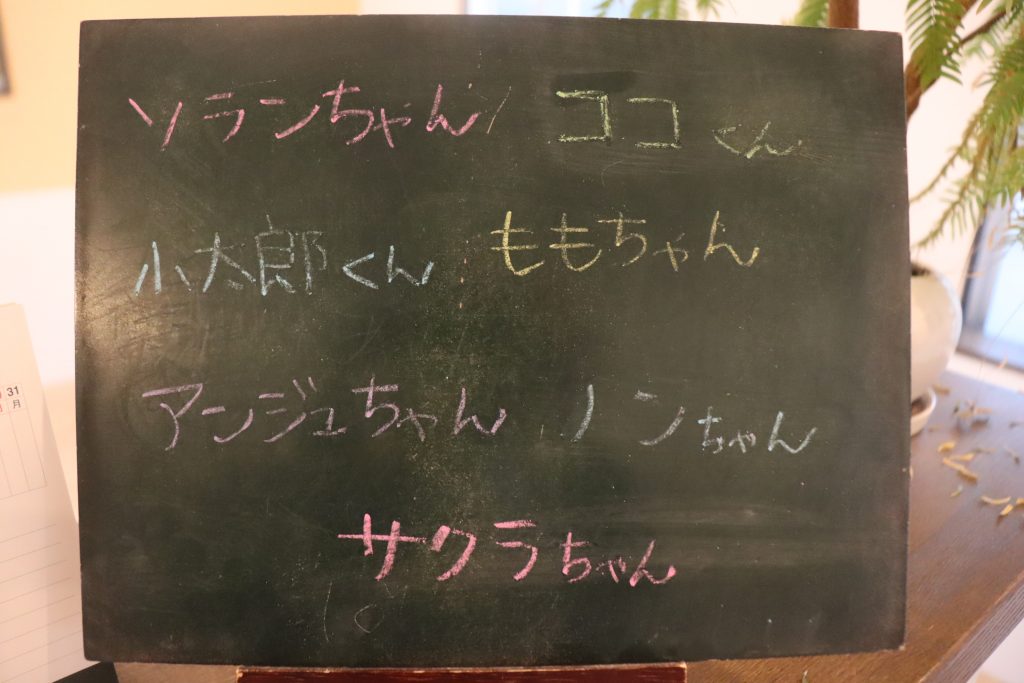 ソランちゃん ココくん
小太郎くん ももちゃん
アンジュちゃん ノンちゃん
サクラちゃん
31
月